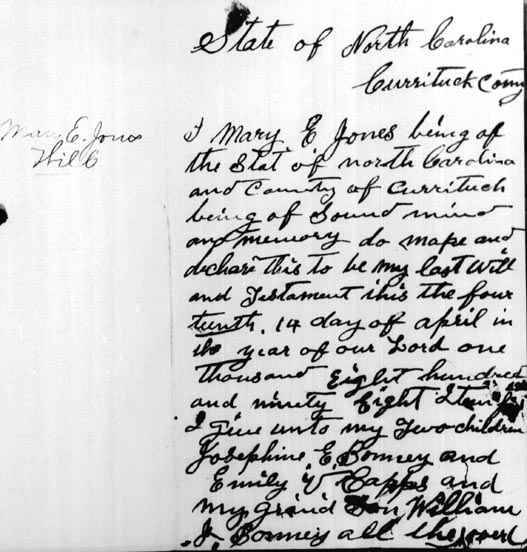 State of North Carolina
Currituck Conty
Mary E. Jones
Will
I Mary E Jones being of
the Stat of north Carolina
and County of Currituck
being of Sound mind
and memory do make and
declare this to be my last Will
and Testament this the four
teenth, 14 day of april in
the year of our Lord one
thousand Eight hundred
and ninety Eight Item
I give unto my Two children
Josephine E. Bonney and
Emily V. Capps and
my grand Son William
J. Bonney all the